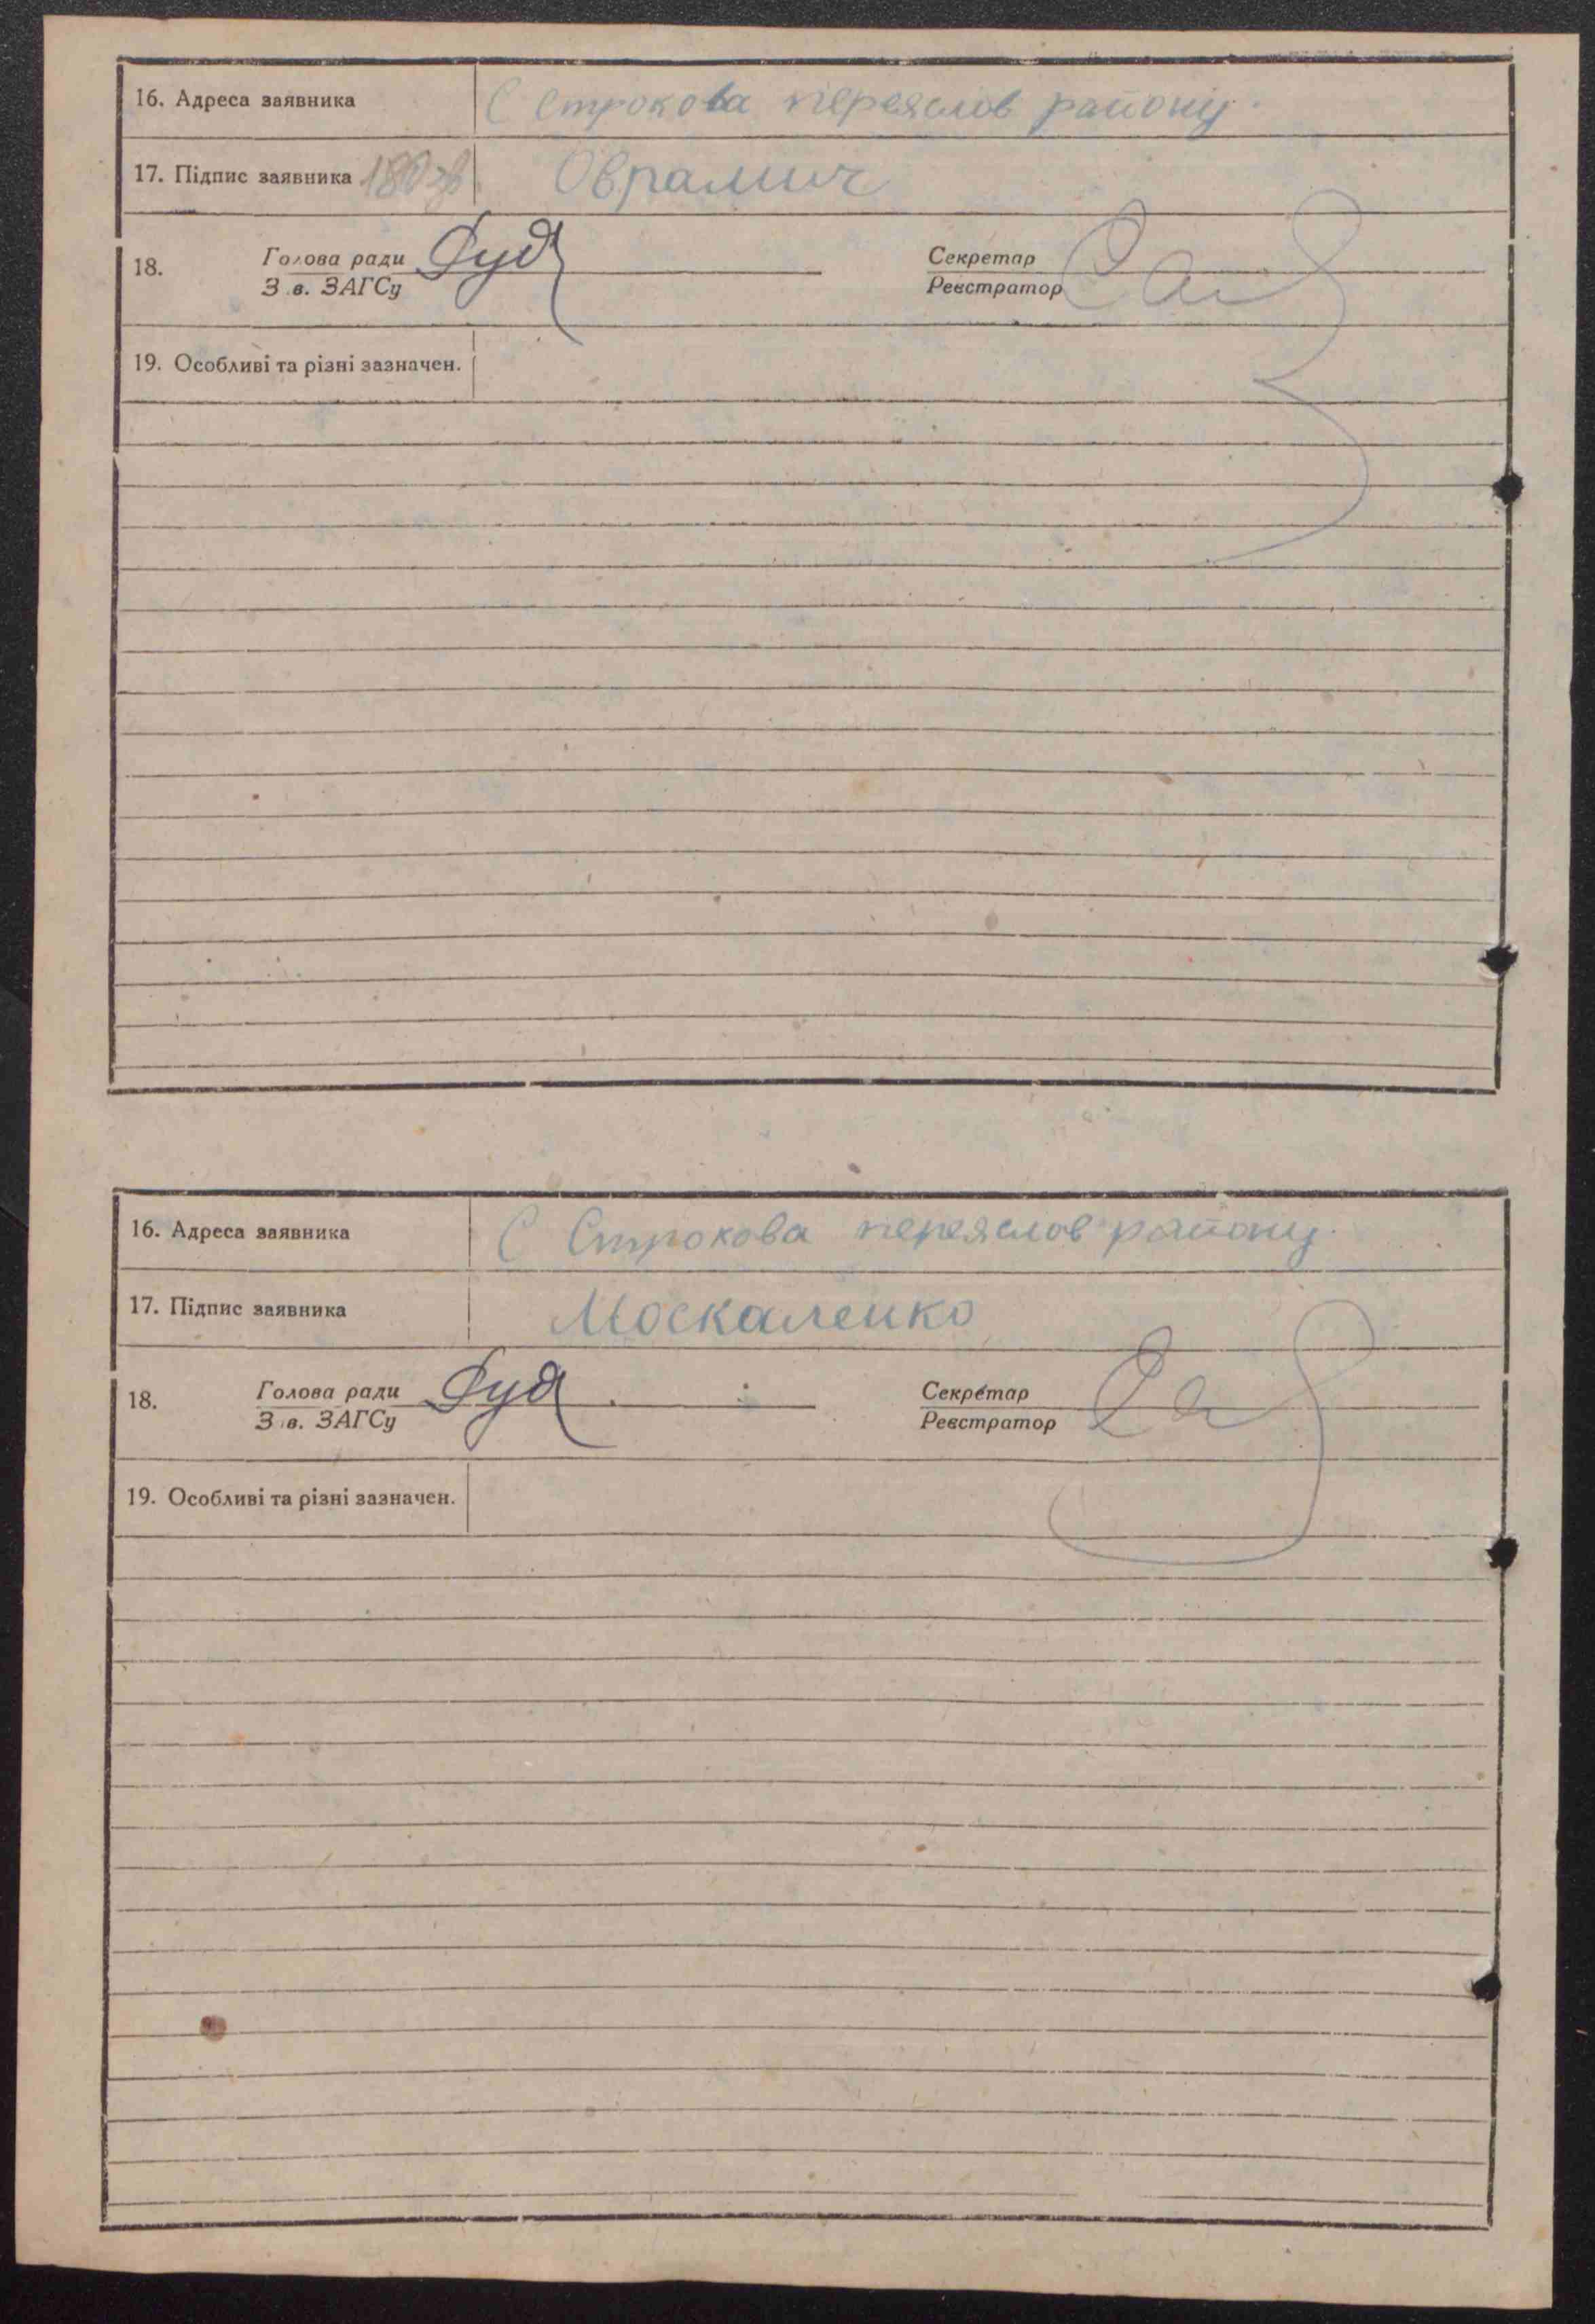 16. Адреса заявника С Строкова переяслов району.
17. Підпис заявника 180 зв Оврамич
18. Голова ради Дуд Секретар
З в. ЗАГСу Реєстратор
19. Особливі та різні зазначен.
16. Адреса заявника С Строкова переяслов району.
17. Підпис заявника Москаленко
18. Голова ради Дуд Секретар
З в. ЗАГСу Реєстратор
19. Особливі та різні зазначен.